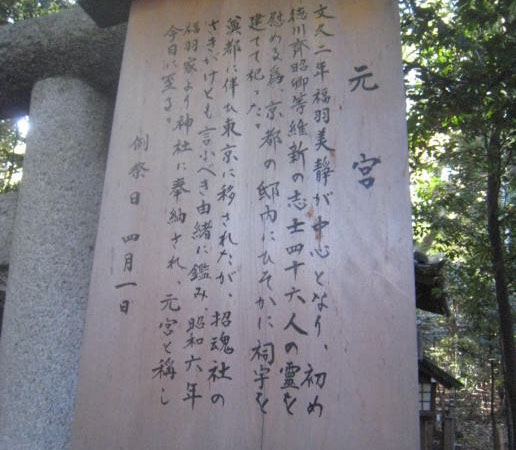 元宮
文久二年福羽美静が中心となり、初め
徳川斉昭卿等維新の志士四十六人の霊を
慰める為、京都の邸内にひそかに祠宇を
建てて祀った。
奠都に伴ひ東京に移されたが、招魂社の
さきがけとも言ふべき由緒に鑑み、昭和六年
福羽家より神社に奉納され、元宮と称し
今日に至る。
例祭日 四月一日